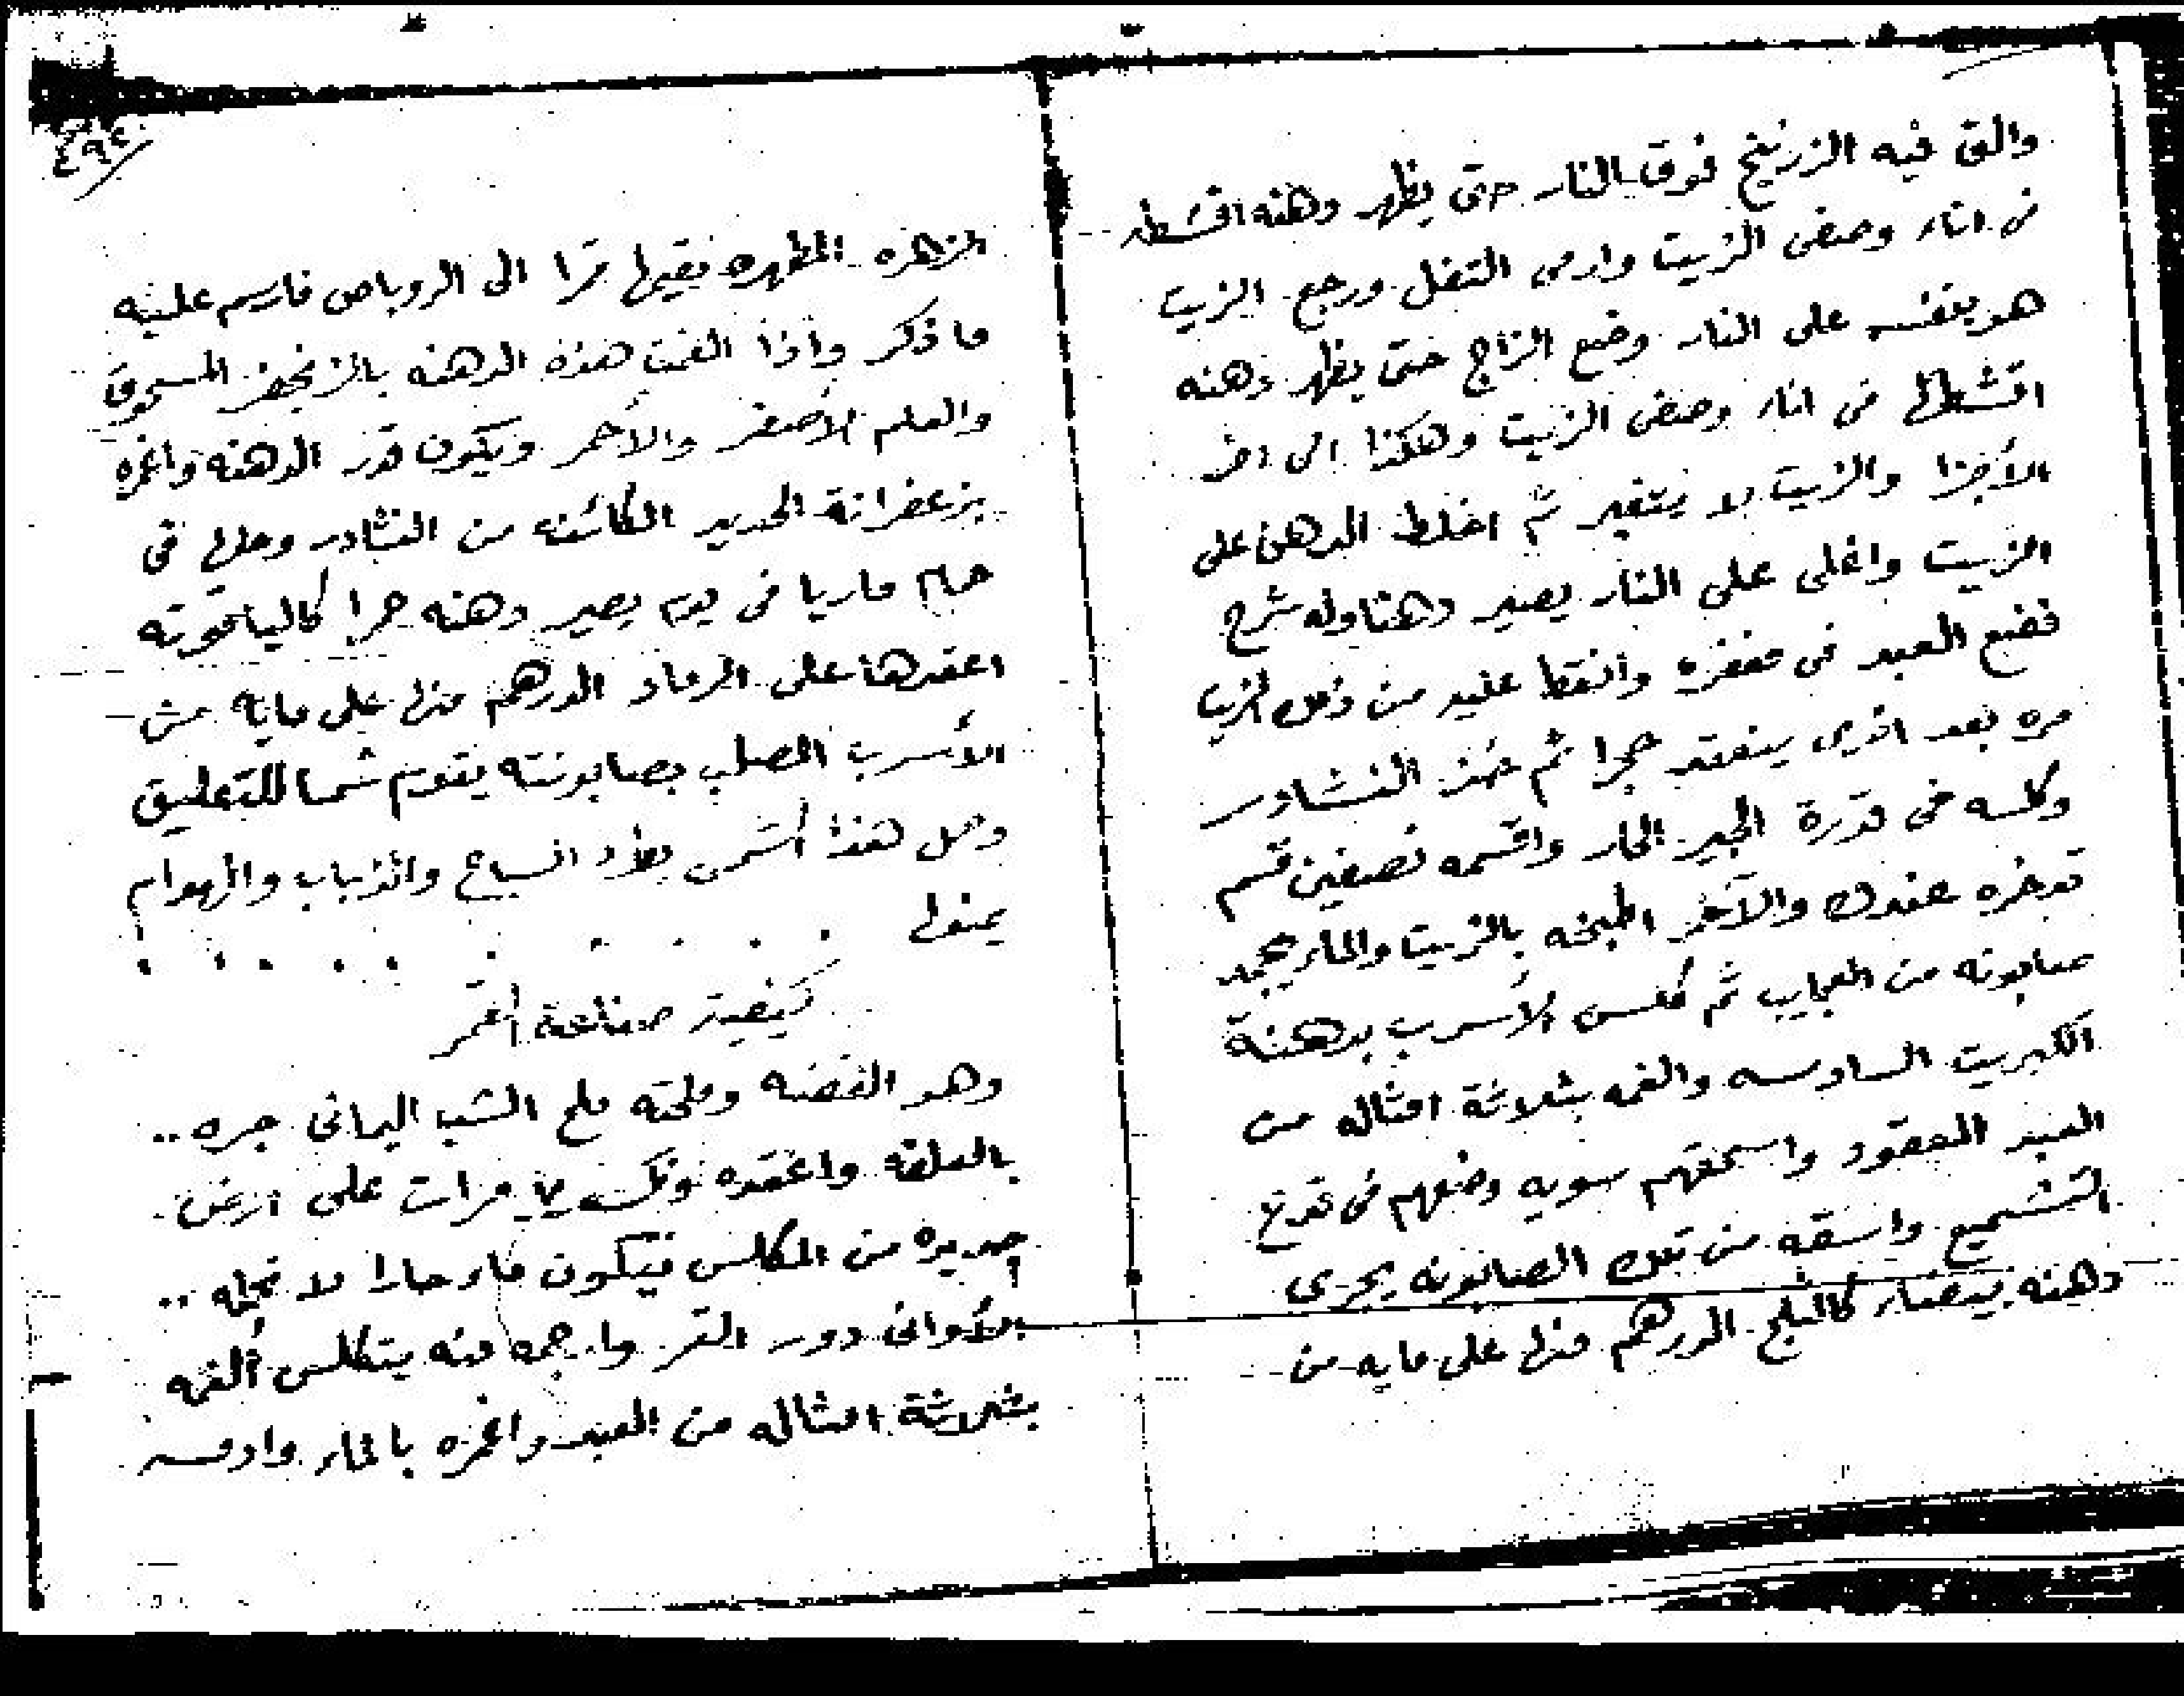 والق فيه الزرنيخ فوق النار حتى يظهر دهنه اقشطه
في اناء وصفي الزيت وارمي التفل ورجع الزيت
هو بنفسه على النار وضع الزاج حتى يظهر دهنه
اقشطها في اناء وصفي الزيت وهكذا الى اخر
الأجزا والزيت لا يتغير ثم اخلط الدهن على
الزيت واغلي على النار يصير دهنا وله شرح
فضع العبد في مغفره وانقط عليه من ذلك الزيت
مره بعد اخرى ينعقد حجرا ثم خذ النشادر
وكلسه في قدرة الجير الحار واقسمه نصفين قسم
تدخره عندك والآخر اطبخه بالزيت والماء يجمد
صابونه من العجايب ثم كلس الأسرب بدهنة
الكبريت السادسه والغمه بثلاثة امثاله من
العبد المعقود واسحقهم سويه وضعهم في قدح
التشميع واسقه من تلك الصابونه يجرى
دهنه بيضاء كالثلج الدرهم منها على مايه من
٤٩٤
الزهره المطهره يقيمها قمرا الى الروباص فارسم عليه
ما ذكر واذا الغمت هذه الدهنه بالزنجفر المسحوق
والعلم الأصفر والأحمر ويكون قدر الدهنه واغمره
بزعفرانة الحديد الكائنه من النشادر وحلها في
حمام ماريا في يوم يصير دهنه حمرا كالياقوته
اعقدها على الرماد الدرهم منها على مايه من
الأسرب المصلب بصابونته يقوم شمسا للتعليق
وحمل هذا الشمس يطرد السباع والذباب والهوام
يمنعها
كيفية صناعة القمر
وهو الفضه وملحه ملح الشب اليماني جره ..
بالعلقه واعقده وذلك ٧ مرات على ارض
جديده من المكلس فيكون ماء حارا لا تحمله ..
الأواني دور القمر وارجمه فيه يتكلس ألغمه
بثلاثة امثاله من العبد واغمره بالماء وادمسه